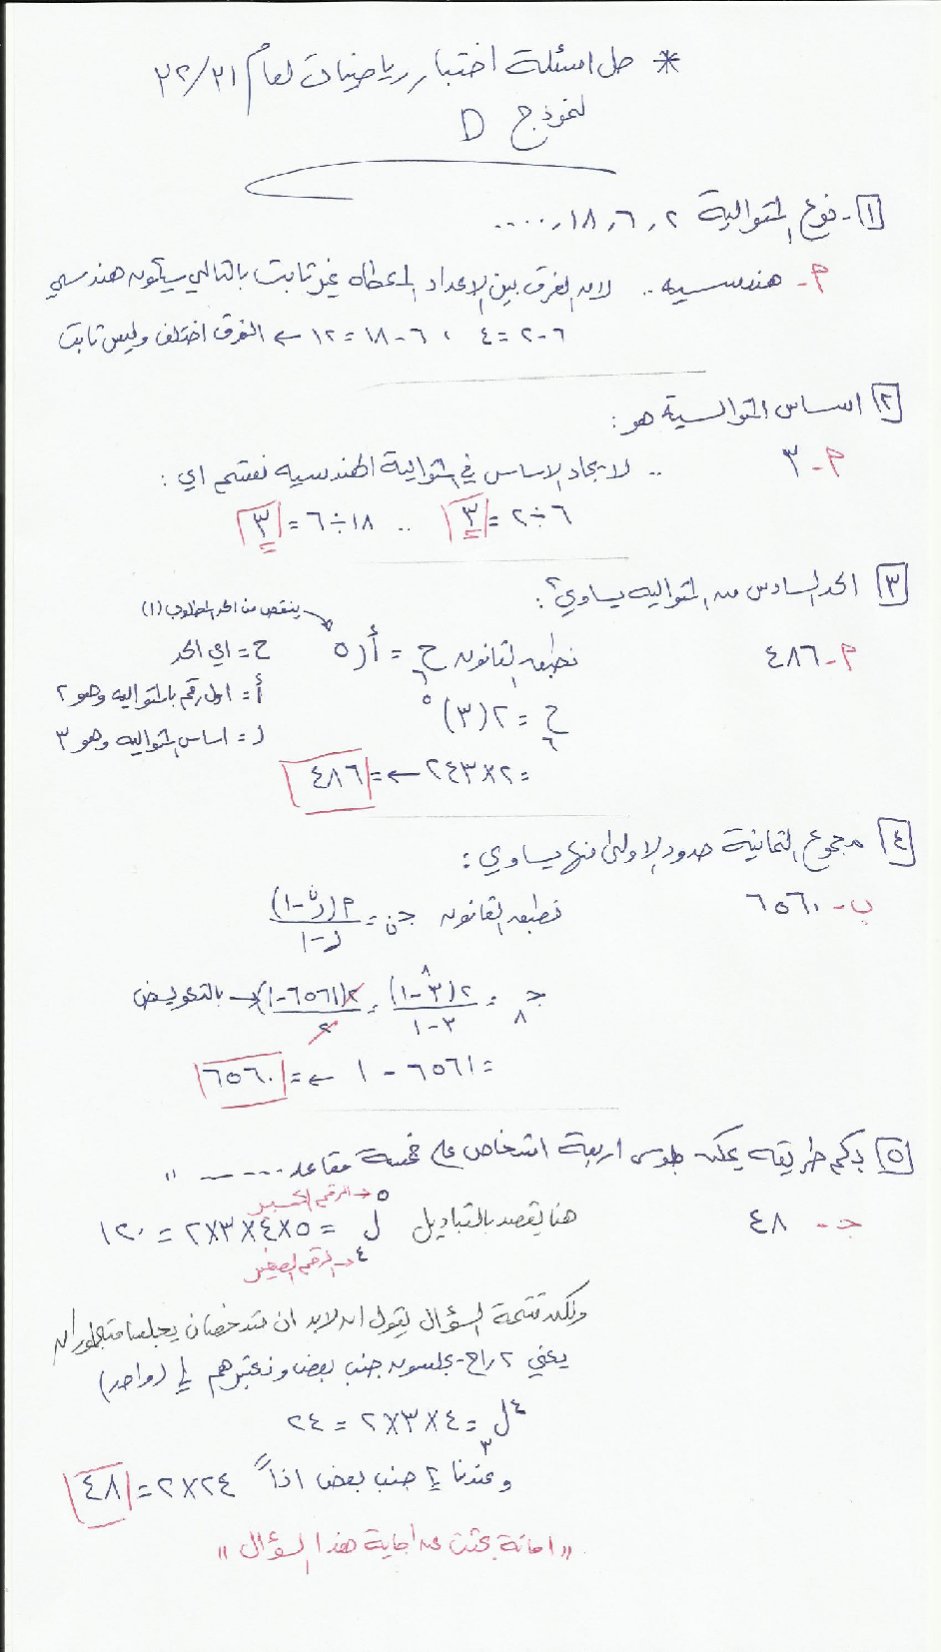 * حل اسئلة اختبار رياضيات لعام ٣١/٣٢
نموذج D
١- نوع المتوالية ٢ ، ٦ ، ١٨ ، ....
م- هندسيه .. لان الفرق بين الاعداد المعطاه غير ثابت بالتالي سيكون هندسي
٦-٢=٤ ، ١٨-٦=١٢ ← الفرق اختلف وليس ثابت
٢ اساس المتوالية هو :
م- ٣ .. لايجاد الاساس في المتوالية الهندسيه نقسم اي :
٦÷٢=٣ .. ١٨÷٦=٣
٣ الحد السادس من المتواليه يساوي ؟ :
ينقص من الحد المطلوب (١)
م- ٤٨٦ نطبق القانون ح٦ = أ ر٥
ح = اي الحد
أ = اول رقم بالمتواليه وهو ٢
ح٦ = ٢(٣)٥
ر = اساس المتواليه وهو ٣
= ٢×٢٤٣ ← = ٤٨٦
٤ مجموع الثمانية حدود الاولى منها يساوي :
ب- ٦٥٦٠ نطبق القانون جـن = م(رن-١) / ر-١
جـ٨ = ٢(٣٨-١) / ٣-١ = ٢(٦٥٦١-١) / ٢ ← بالتعويض
= ٦٥٦١ - ١ ← = ٦٥٦٠
٥ بكم طريقه يمكن جلوس اربعة اشخاص على خمسة مقاعد ...... "
الرقم الكبير
جـ- ٤٨ هنا يقصد بالتباديل ٥ل٤ = ٥×٤×٣×٢ = ١٢٠
الرقم الصغير
ولكن تتمة السؤال يقول انه لابد ان شخصان يجلسا متجاوران
يعني ٢ راح يجلسون جنب بعض ونعتبرهم (واحد)
٤ل٣ = ٤×٣×٢ = ٢٤
وعندنا ٢ جنب بعض اذاً ٢٤×٢ = ٤٨
" امانة بحثت عن اجابة هذا السؤال "